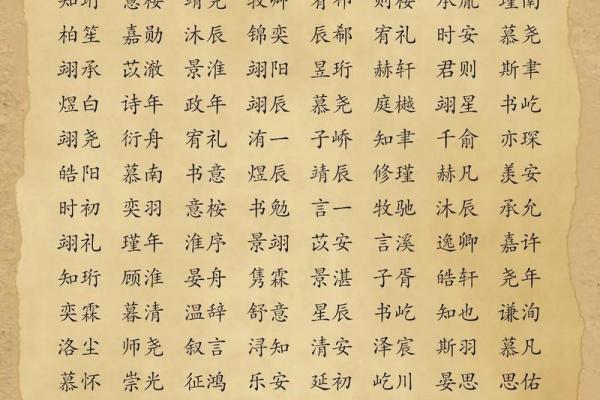 柏笙 嘉勋 沐辰 锦奕 辰郗 宥礼 时安 慕尧
翊承 苡澈 景淮 翊阳 昱珩 赫轩 君则 斯聿
煜白 诗年 政年 翊辰 慕尧 庭樾 翊星 书屹
翊尧 衍舟 宥礼 洧一 子峤 知聿 千俞 亦琛
皓阳 慕南 书意 煜辰 靖辰 修瑾 赫凡 羡安
时初 奕羽 意桉 书勉 言一 牧驰 沐辰 承允
翊礼 瑾年 淮序 景翊 苡安 言溪 逸卿 嘉许
知珩 顾淮 晏舟 隽霖 景湛 子胥 皓轩 尧年
奕霖 暮清 温辞 舒意 星辰 书屹 知也 谦洵
洛尘 师尧 叙言 浔知 清安 泽宸 斯羽 慕凡
慕怀 崇光 征鸿 乐安 延初 屹川 晏思 思佑